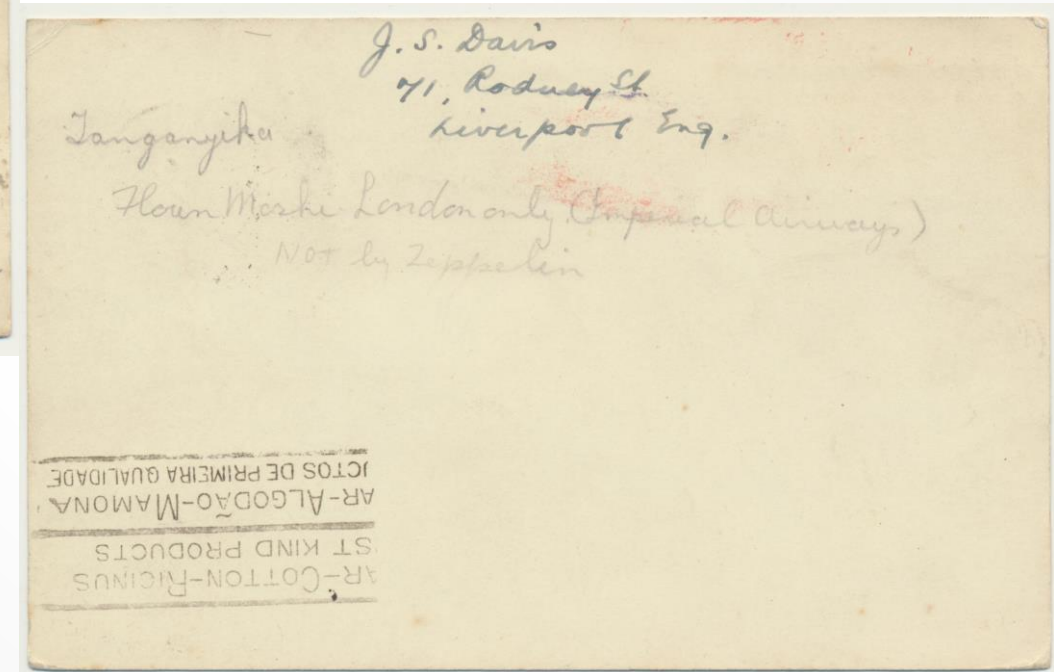 J. S. Davis
71, Rodney St.
Liverpool Eng.
Tanganyika
Flown Moshi London only (Imperial Airways)
Not by Zeppelin
AR-COTTON-RICINUS
ST KIND PRODUCTS
AR-ALGODÃO-MAMONA
UCTOS DE PRIMEIRA QUALIDADE